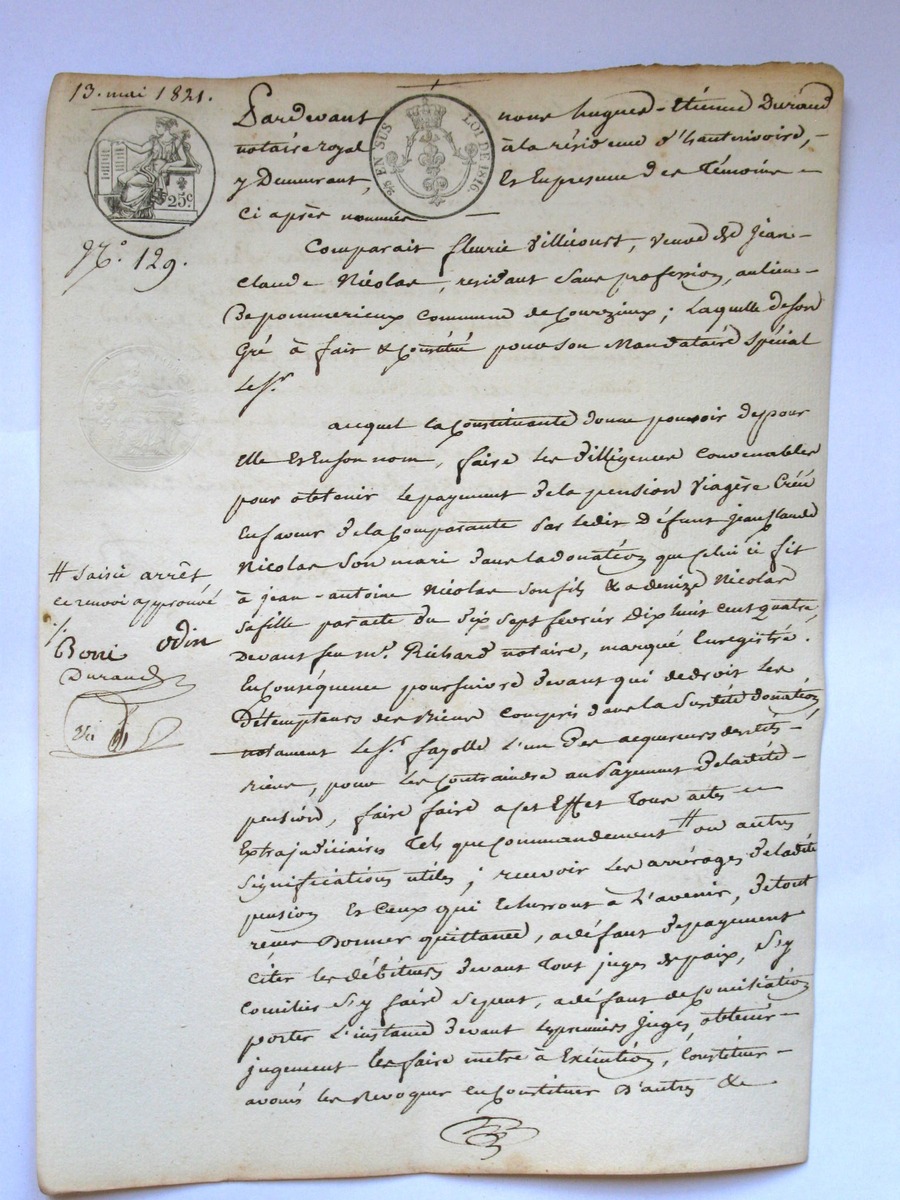 13. mai 1821.
Pardevant nous hugues-Étienne Durand
notaire royal à la résidence d'hauterivoire,
y Demeurant, Et En presence des Témoins
Ci après nommés
25 EN SUS
LOI DE 1816.
25c.
N.o 129.
Comparait fleurie Villecourt, veuve de Jean-
Claude Nicolas, residant Sans profession, au lieu-
De pommerieux Commune de Courzieux; Laquelle de son
Gré à fait & Constitué pour son Mandataire Spécial
Le Sr.
auquel la Constituante donne pouvoir de pour
Elle Et En son nom, faire Les Dilligences Convenables
pour obtenir le payement de la pension Viagère Créée
En faveur de la Comparante par ledit Défunt jean Claude
Nicolas Son mari dans la donation que Celui ci fit
à jean-antoine Nicolas son fils & a denize Nicolas
sa fille par acte du Six Sept fevrier Dix huit Cent quatre,
Devant feu Me. Richard notaire, marqué Enregistré.
En Conséquence poursuivre devant qui de droit Les
Détempteurs des Biens Compris dans la Susdite donation
notament le Sr. fayolle L'un Des acquereurs desdits
Biens, pour Les Contraindre au Payement De ladite
pension, faire faire a Cet Effet Tous actes
Extrajudiciaires Tels que Commandement # ou autres
Significations utiles; recevoir Les arrérages De ladite
pension Et Ceux qui Echerront à L'avenir, De tout
reçu Donner quittance, a défaut De payement
Citer les débiteurs devant Tout juges de paix, S'y
Concilier Si faire Se peut, a défaut de Conciliation
porter L'instance devant les premiers Juges, obtenir
jugement les faire metre à Exécution, Constituer
avoués les Revoquer en Constituer D'autres &
# Saisie arrêt,
ce renvoi approuvé
Borri Odin
Durand